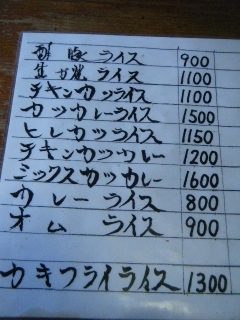 酢豚ライス 900
生姜焼ライス 1100
チキンカツライス 1100
カツカレーライス 1500
ヒレカツライス 1150
チキンカツカレー 1200
ミックスカツカレー 1600
カレーライス 800
オムライス 900
カキフライライス 1300